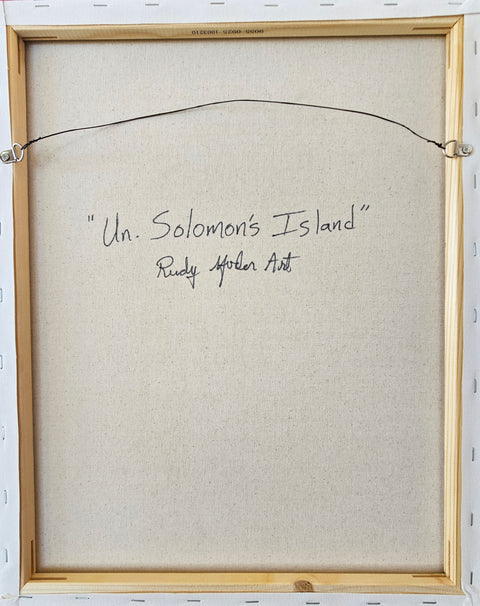 "Un. Solomon's Island"
Rudy Art